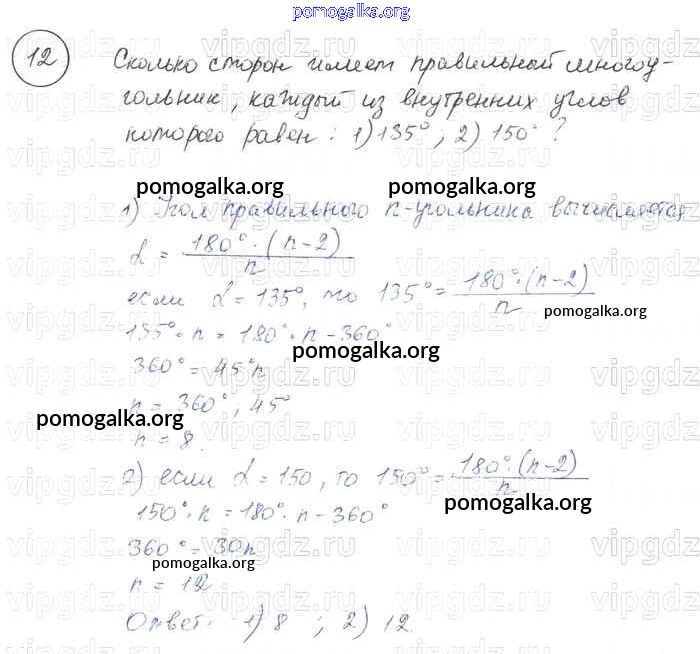 pomogalka.org
12 Сколько сторон имеет правильный многоу-
гольник, каждый из внутренних углов
которого равен: 1) 135°; 2) 150°?
pomogalka.org pomogalka.org
1) Угол правильного n-угольника вычисляется
α = 180°·(n-2)/n
если α = 135°, то 135° = 180°·(n-2)/n
pomogalka.org
135°·n = 180°·n - 360°
pomogalka.org
360° = 45°n
n = 360° : 45°
pomogalka.org
n = 8.
2) если α = 150, то 150° = 180°·(n-2)/n
pomogalka.org
150°·n = 180°·n - 360°
360° = 30n
pomogalka.org
n = 12
Ответ: 1) 8 ; 2) 12.
pomogalka.org
vipgdz.ru